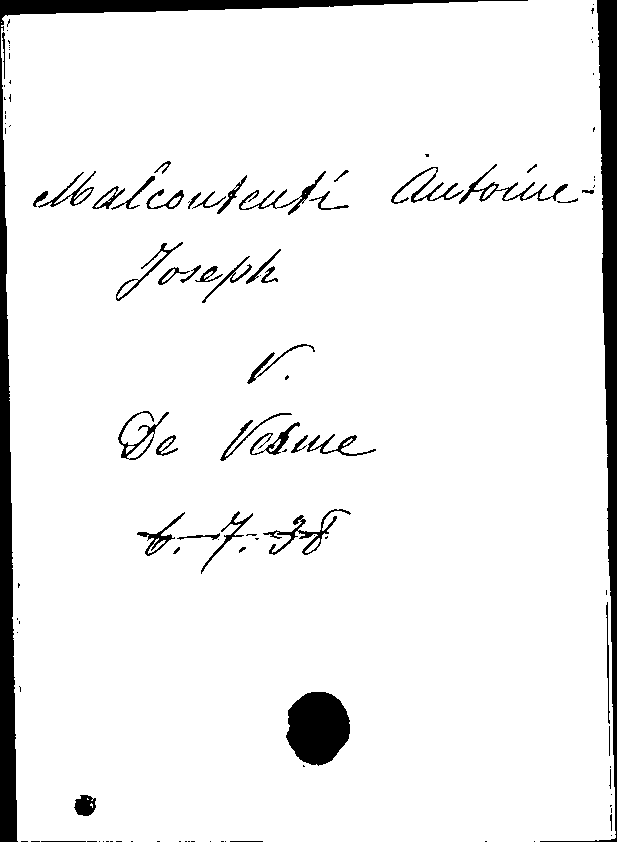 Malcontenti Antoine-
Joseph
v.
De Vesme
6. 7. 38